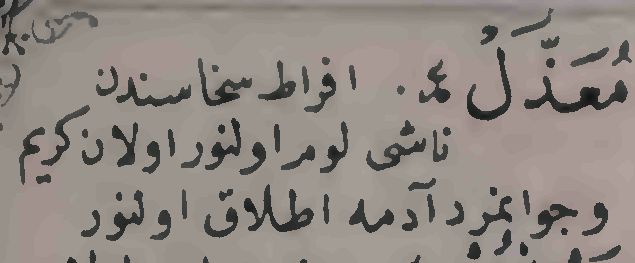 مُعَذَّلٌ عـ . افراط سخاسندن
ناشى لوم اولنور اولان كريم
وجوانمرد آدمه اطلاق اولنور